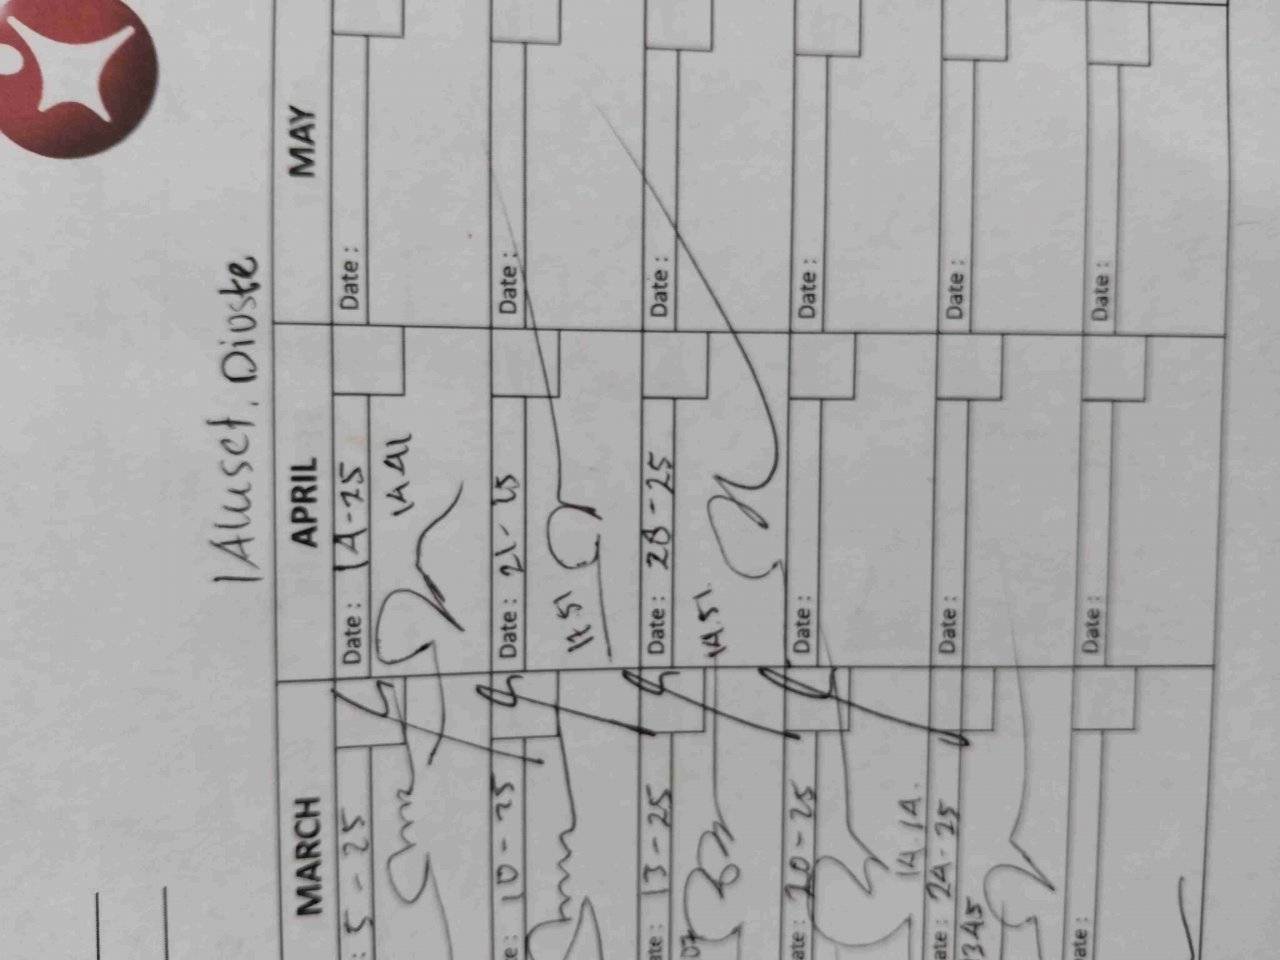 MARCH APRIL MAY
: 5-25 Date: 14-25 Date:
14 41
te: 10-25 Date: 21-25 Date:
17.51
ate: 13-25 Date: 28-25 Date:
07 14.51
ate: 20-25 Date: Date:
14.14.
ate: 24-25 Date: Date:
2345
ate: Date: Date: